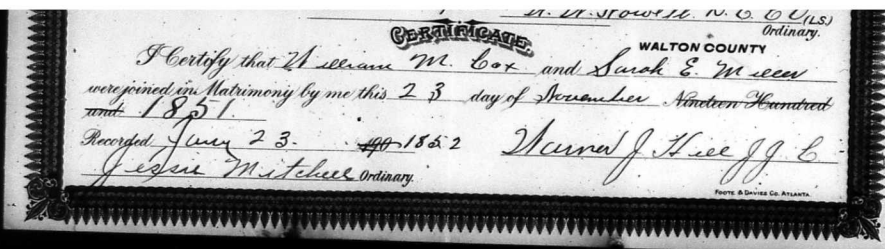 N. C. C. O. (LS.)
Ordinary.
CERTIFICATE.
WALTON COUNTY
I Certify that William M. Cox and Sarah E. Miller
were joined in Matrimony by me this 23 day of November Nineteen Hundred
and 1851.
Recorded Jany 23. 190 1852 Warner J. Hill J. J. C.
Jessie Mitchell Ordinary.
FOOTE & DAVIES CO. ATLANTA